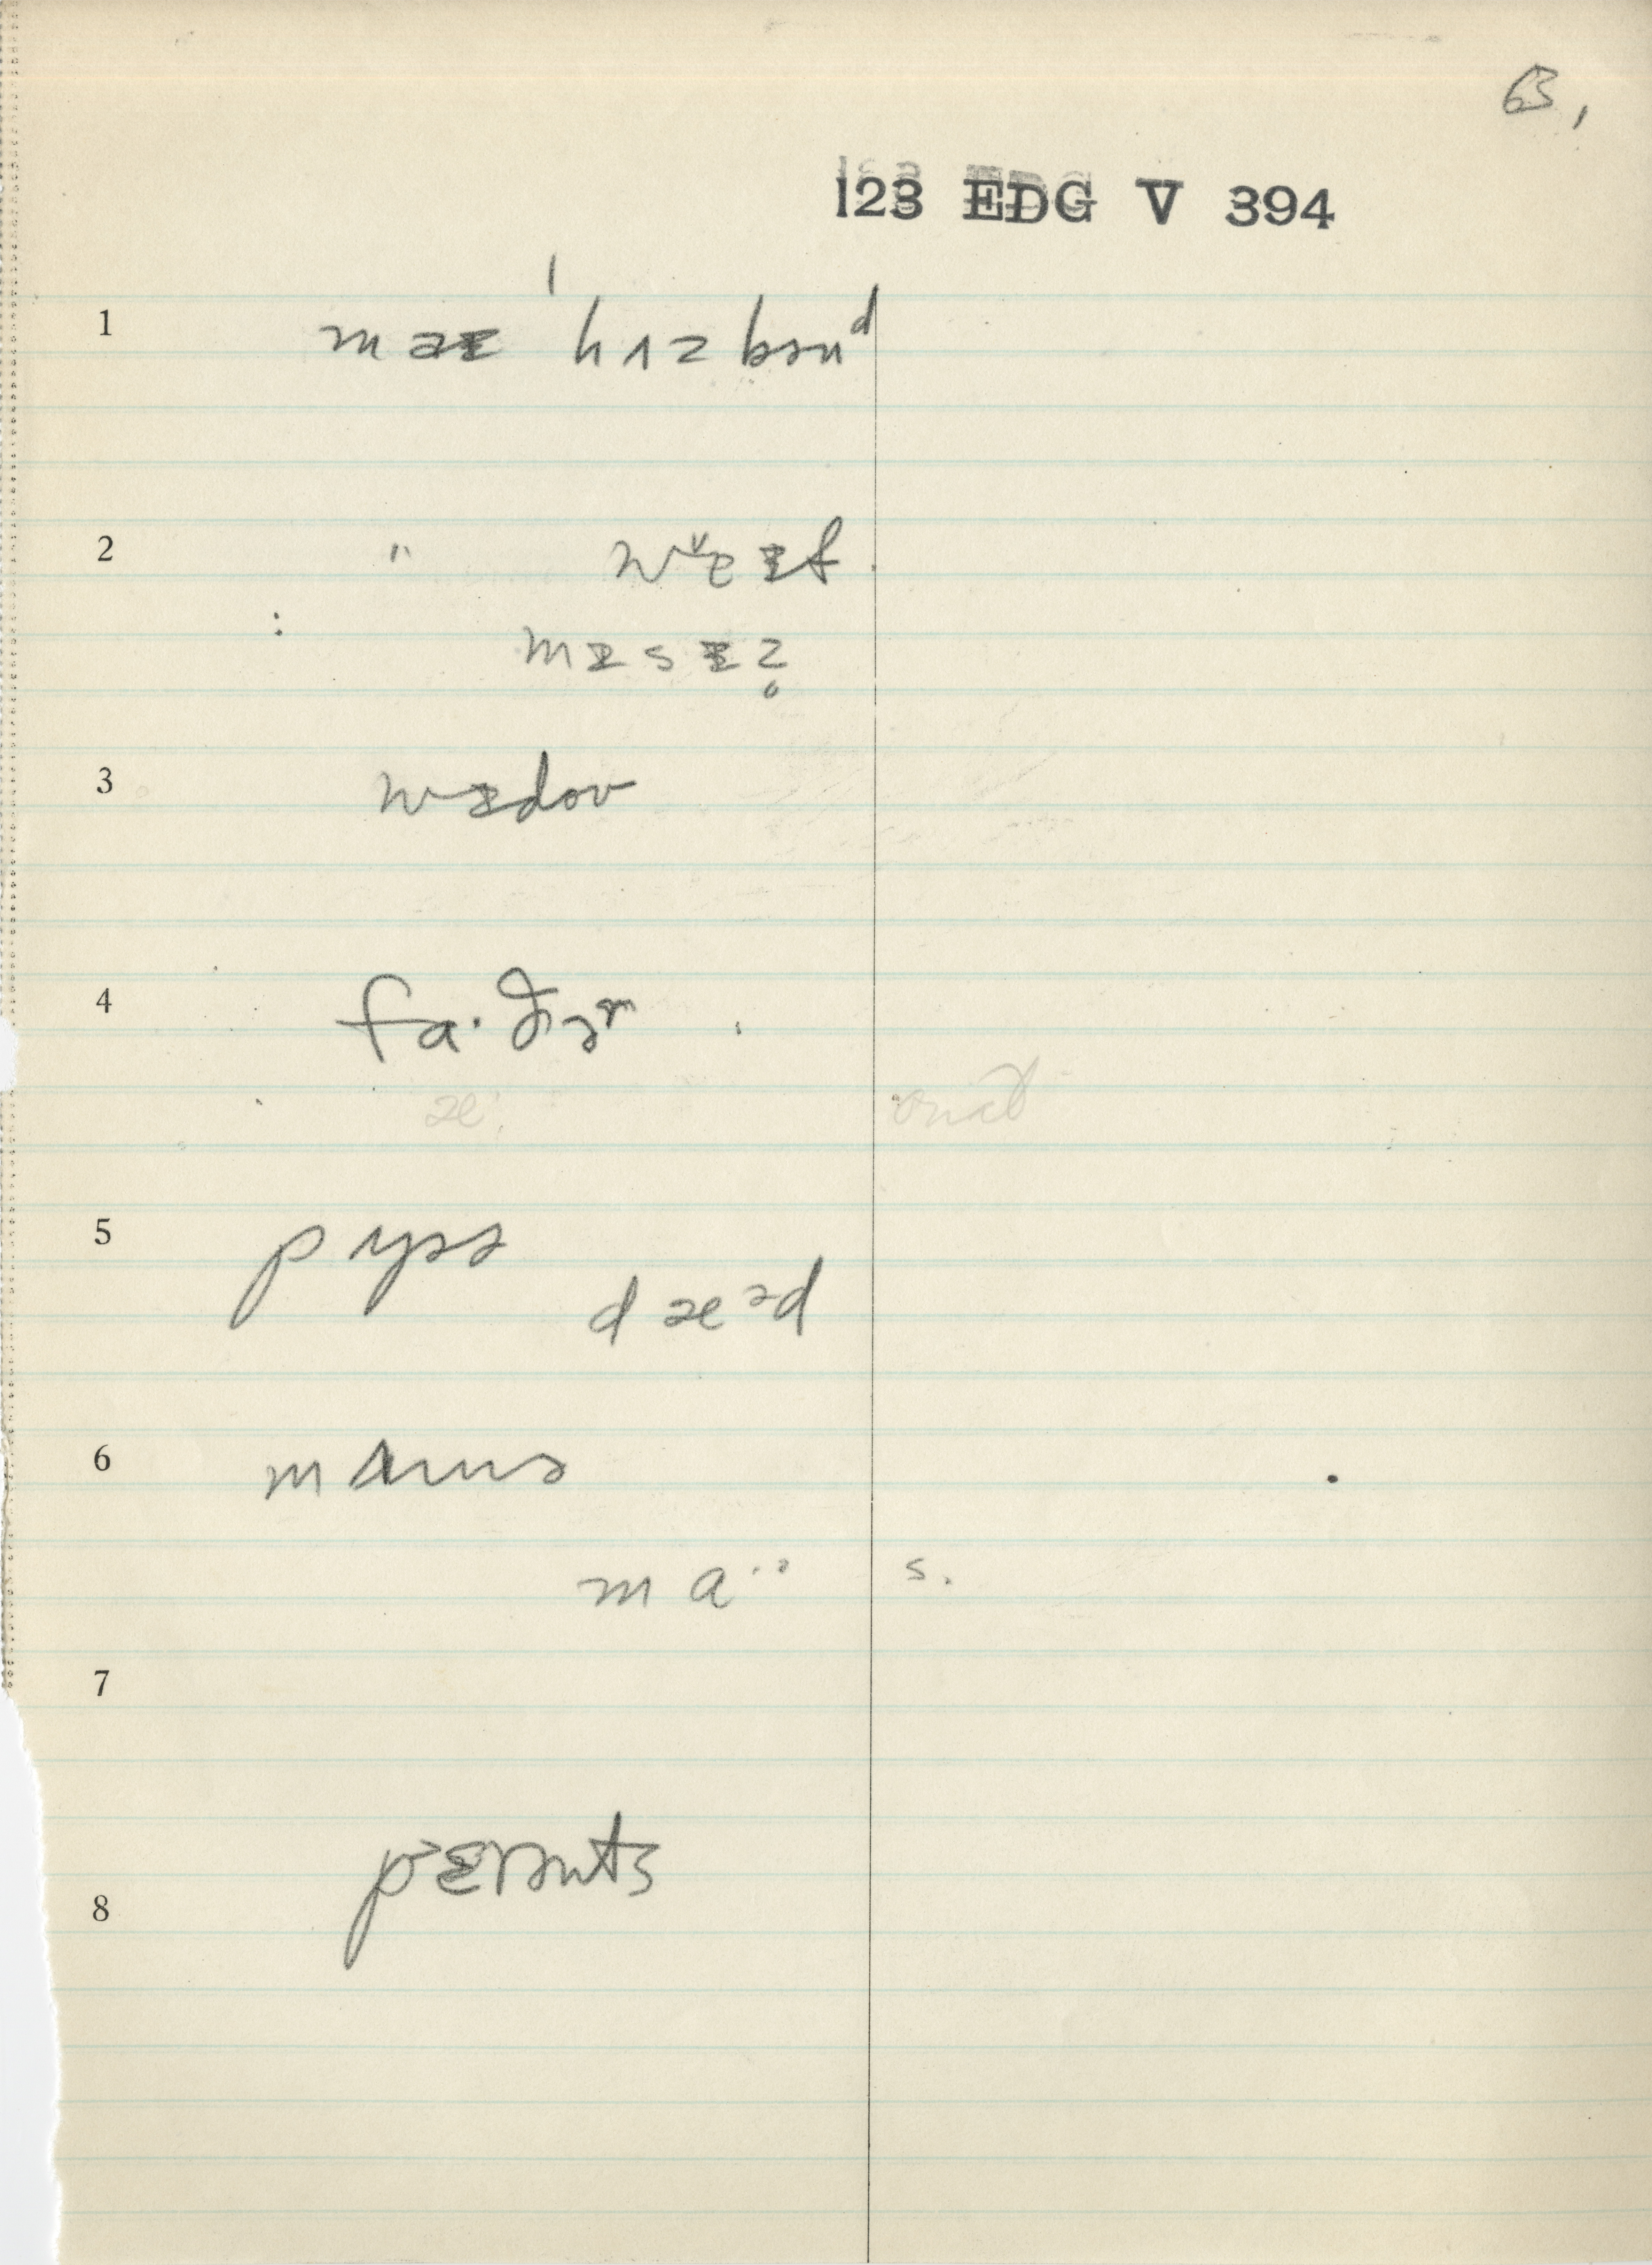 63,
123 EDG V 394
1 maɪ 'hʌzbənᵈ
2 " wᵛɐɪf
mɪsɪz̥
3 wɪdoʊ
4 fa·ðəʳ
æ
5 pʌpə
dæᵊd
6 mʌmə
ma·ᵊ s.
7
8 pᵊɛrənts